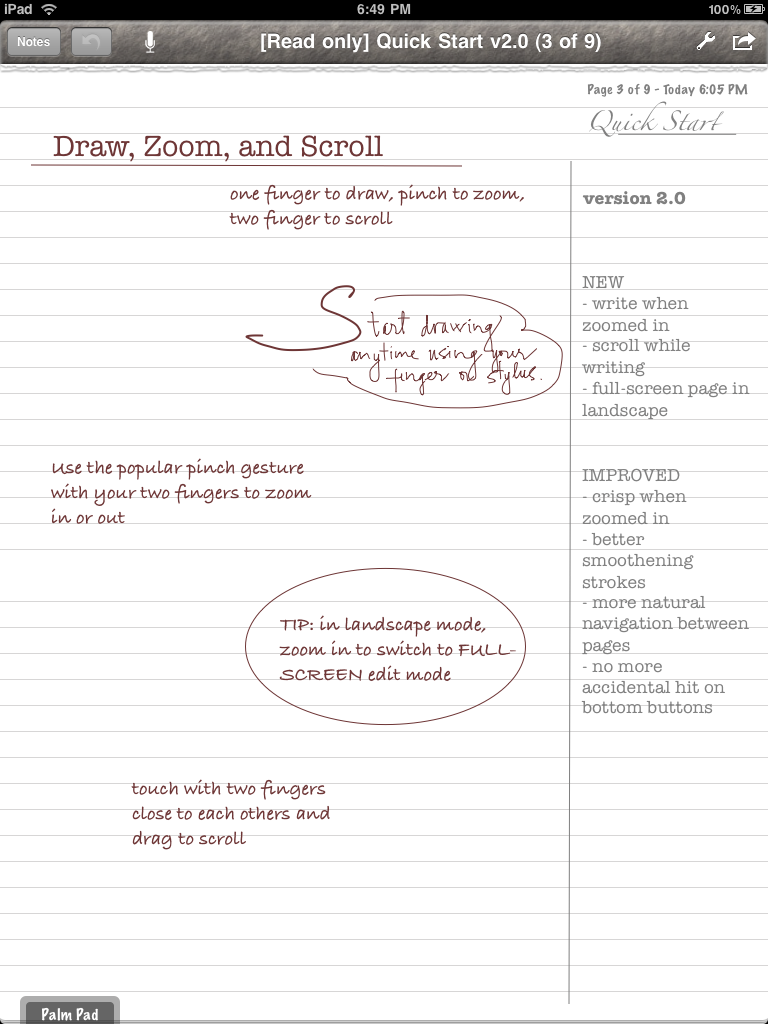 iPad 6:49 PM 100%
Notes [Read only] Quick Start v2.0 (3 of 9)
Page 3 of 9 - Today 6:05 PM
Quick Start
Draw, Zoom, and Scroll
one finger to draw, pinch to zoom,
two finger to scroll
Start drawing
anytime using your
finger or stylus.
Use the popular pinch gesture
with your two fingers to zoom
in or out
TIP: in landscape mode,
zoom in to switch to FULL-
SCREEN edit mode
touch with two fingers
close to each others and
drag to scroll
version 2.0
NEW
- write when
zoomed in
- scroll while
writing
- full-screen page in
landscape
IMPROVED
- crisp when
zoomed in
- better
smoothening
strokes
- more natural
navigation between
pages
- no more
accidental hit on
bottom buttons
Palm Pad